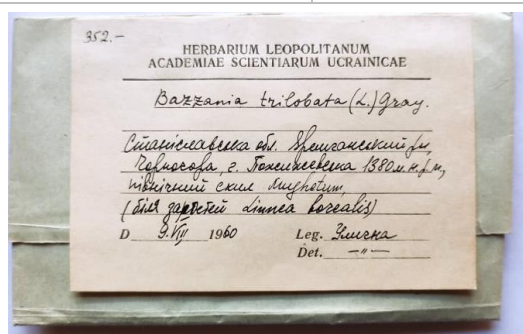 352.-
HERBARIUM LEOPOLITANUM
ACADEMIAE SCIENTIARUM UCRAINICAE
Bazzania trilobata (L.) Gray.
Станіславська обл. р-н,
Чорногора, г. Пожижевська 1380 м.н.р.м,
північний схил Mughetum,
(біля заростей Linnea borealis)
D 9.VII 1960 Leg. Улична
Det. —〃—